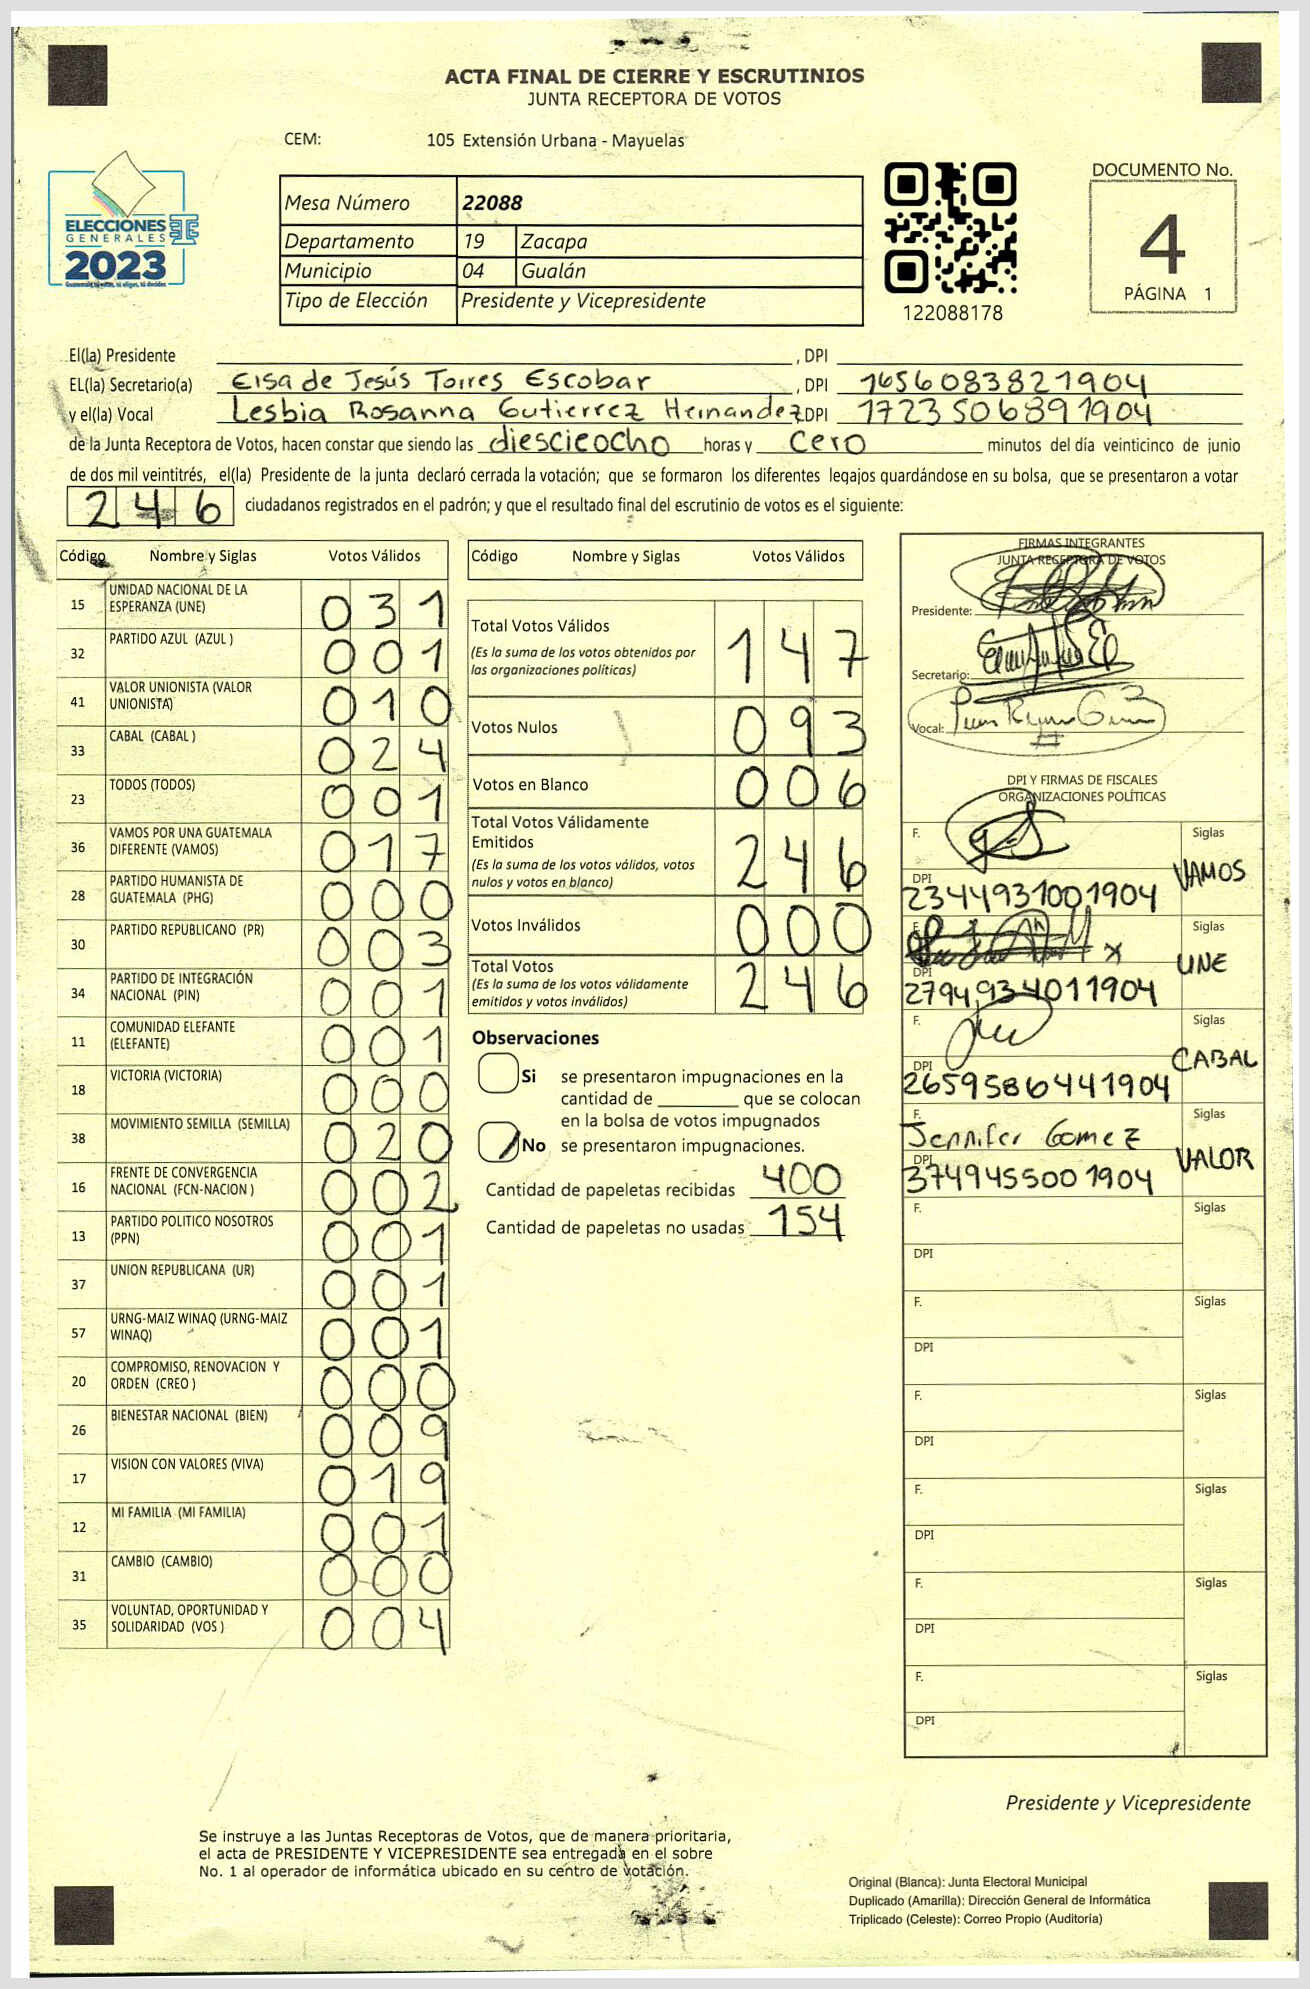 ACTA FINAL DE CIERRE Y ESCRUTINIOS
JUNTA RECEPTORA DE VOTOS
CEM: 105 Extensión Urbana - Mayuelas
ELECCIONES
GENERALES
2023
Mesa Número 22088
Departamento 19 Zacapa
Municipio 04 Gualán
Tipo de Elección Presidente y Vicepresidente
122088178
DOCUMENTO No.
4
PÁGINA 1
El(la) Presidente , DPI
EL(la) Secretario(a) Elsa de Jesús Torres Escobar , DPI 1656083821904
y el(la) Vocal Lesbia Rosanna Gutierrez Hernandez, DPI 1723506891904
de la Junta Receptora de Votos, hacen constar que siendo las diescieocho horas y cero minutos del día veinticinco de junio
de dos mil veintitrés, el(la) Presidente de la junta declaró cerrada la votación; que se formaron los diferentes legajos quardándose en su bolsa, que se presentaron a votar
246 ciudadanos registrados en el padrón; y que el resultado final del escrutinio de votos es el siguiente:
Código Nombre y Siglas Votos Válidos
15 UNIDAD NACIONAL DE LA ESPERANZA (UNE) 031
32 PARTIDO AZUL (AZUL ) 001
41 VALOR UNIONISTA (VALOR UNIONISTA) 010
33 CABAL (CABAL ) 024
23 TODOS (TODOS) 001
36 VAMOS POR UNA GUATEMALA DIFERENTE (VAMOS) 017
28 PARTIDO HUMANISTA DE GUATEMALA (PHG) 000
30 PARTIDO REPUBLICANO (PR) 003
34 PARTIDO DE INTEGRACIÓN NACIONAL (PIN) 001
11 COMUNIDAD ELEFANTE (ELEFANTE) 001
18 VICTORIA (VICTORIA) 000
38 MOVIMIENTO SEMILLA (SEMILLA) 020
16 FRENTE DE CONVERGENCIA NACIONAL (FCN-NACION ) 002
13 PARTIDO POLITICO NOSOTROS (PPN) 001
37 UNION REPUBLICANA (UR) 001
57 URNG-MAIZ WINAQ (URNG-MAIZ WINAQ) 001
20 COMPROMISO, RENOVACION Y ORDEN (CREO ) 000
26 BIENESTAR NACIONAL (BIEN) 009
17 VISION CON VALORES (VIVA) 019
12 MI FAMILIA (MI FAMILIA) 001
31 CAMBIO (CAMBIO) 000
35 VOLUNTAD, OPORTUNIDAD Y SOLIDARIDAD (VOS ) 004
Código Nombre y Siglas Votos Válidos
Total Votos Válidos 147
(Es la suma de los votos obtenidos por
las organizaciones políticas)
Votos Nulos 093
Votos en Blanco 006
Total Votos Válidamente
Emitidos 246
(Es la suma de los votos válidos, votos
nulos y votos en blanco)
Votos Inválidos 000
Total Votos 246
(Es la suma de los votos válidamente
emitidos y votos inválidos)
Observaciones
Si se presentaron impugnaciones en la
cantidad de ________ que se colocan
en la bolsa de votos impugnados
No se presentaron impugnaciones.
Cantidad de papeletas recibidas 400
Cantidad de papeletas no usadas 154
FIRMAS INTEGRANTES
JUNTA RECEPTORA DE VOTOS
Presidente:
Secretario:
Vocal:
DPI Y FIRMAS DE FISCALES
ORGANIZACIONES POLÍTICAS
F. Siglas
DPI VAMOS
2344931001904
F.
DPI UNE
2794934011904
F. Siglas
DPI CABAL
2659586441904
F. Siglas
Jennifer Gomez
DPI VALOR
3749455001904
F. Siglas
DPI
F. Siglas
DPI
F. Siglas
DPI
F. Siglas
DPI
F. Siglas
DPI
F. Siglas
DPI
Presidente y Vicepresidente
Se instruye a las Juntas Receptoras de Votos, que de manera prioritaria,
el acta de PRESIDENTE Y VICEPRESIDENTE sea entregada en el sobre
No. 1 al operador de informática ubicado en su centro de votación.
Original (Blanca): Junta Electoral Municipal
Duplicado (Amarilla): Dirección General de Informática
Triplicado (Celeste): Correo Propio (Auditoría)